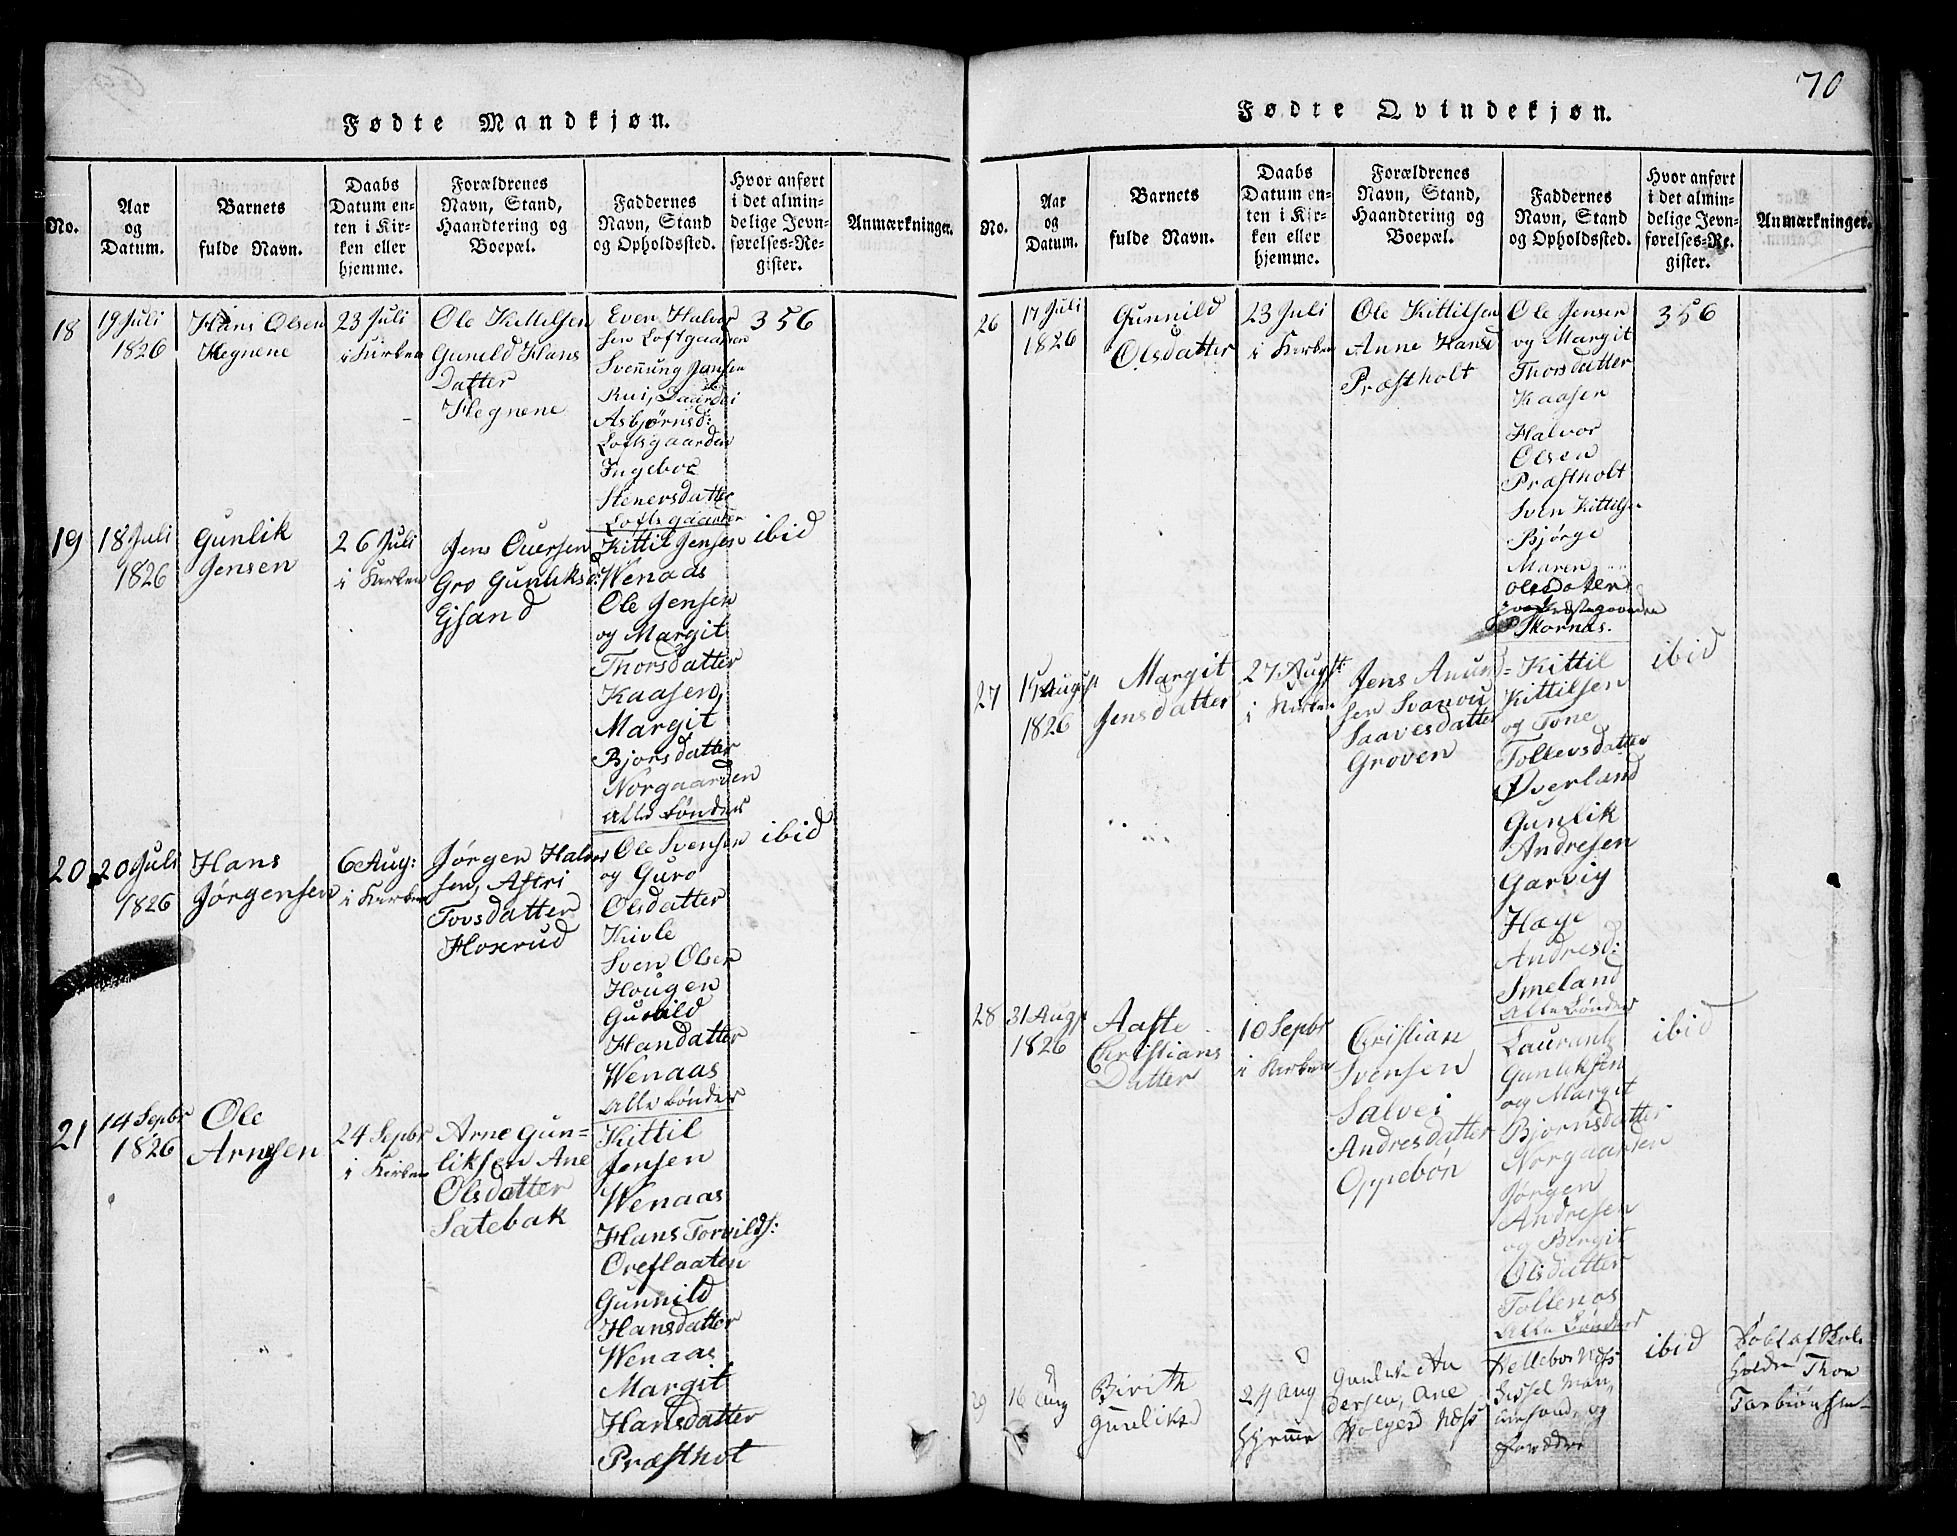 70
Fødte Mandkjøn.
No.
Aar
og
Datum.
Barnets
fulde Navn.
Daabs
Datum en-
ten i Kir-
ken eller
hjemme.
Forældrenes
Navn, Stand,
Haandtering og
Boepæl.
Faddernes
Navn, Stand
og Opholdssted.
Hvor anført
i det almin-
delige Jevn-
førelses-Re-
gister.
Anmærkninger.
18
19 Juli
1826
Hans Olsen
Hegnene
23 Juli
i Kirken
Ole Kittelsen
Gunild Hans
Datter
Hegnene
Even Halvor
sen Loftgaarden
Svennung Jansen
Rui,
Asbjørnsd:
Loftsgaarden
Ingebor
Stenersdatter
Loftsgaarden
356
19
18 Juli
1826
Gunlik
Jensen
26 Juli
i Kirken
Jens Ouersen
Gro Gunliksd:
Gisand
Kittil Jensen
Wenaas
Ole Jensen
og Margit
Thorsdatter
Kaasen,
Margit
Bjorsdatter
Norgaarden
Alle bønder
ibid
20
20 Juli
1826
Hans
Jørgensen
6 Aug:
i Kirken
Jørgen Halvor
sen, Astri
Tovsdatter
Hoxrud
Ole Svensen
og Guro
Olsdatter
Kivle
Sven Olsen
Hougen
Gunild
Handatter
Wenaas
Alle bønder
ibid
21
14 Sepbr
1826
Ole
Arnesen
24 Sepbr
i Kirken
Arne Gun=
liksen Ane
Olsdatter
Satebak
Kittil
Jensen
Wenaas
Hans Torvilds:
Oreflaaten
Gunnild
Hansdatter
Wenaas
Margit
Hansdatter
Præsthot
Fødte Qvindekjøn.
No.
Aar
og
Datum.
Barnets
fulde Navn.
Daabs
Datum en-
ten i Kir-
ken eller
hjemme.
Forældrenes
Navn, Stand,
Haandtering og
Boepæl.
Faddernes
Navn, Stand
og Opholdssted.
Hvor anført
i det almin-
delige Jevn-
førelses-Re-
gister.
Anmærkninger.
26
17 Juli
1826
Gunnild
Olsdatter
23 Juli
i Kirken
Ole Kittilsen
Anne Hansd
Præstholt
Ole Jensen
og Margit
Thorsdatter
Kaasen
Halvor
Olsen
Præstholt
Sven Kittilsen
Bjørge
Maren
Olsdatter
Skornas.
356
27
August
1826
Margit
Jensdatter
27 Augst
i Kirken
Jens Anun=
sen Svanou
Saavesdatter
Groven
Kittil
Kittilsen
og Tone
Tollevsdatter
Øverland
Gunlik
Andresen
Garvig
Hæge
Andresd:
Smeland
Alle bønder
ibid
28
31 Augst
1826
Aaste
Christians
Datter
10 Sepbr
i Kirken
Christian
Svensen
Salvei
Andresdatter
Oppebön
Laurantz
Gunliksen
og Margit
Bjornsdatter
Norgaarden
Jørgen
Andresen
og Bergit
Olsdatter
Tollenas
Alle bønder
ibid
29
16 Aug
Birith
Gunliksd
24 Aug
Hjemme
Gunlik An
dersen, Ane
Holgesd Næss
Hellebor Næss
Sissel
og
Forældre
ibid
Døbt af Skole
holder Thor
Torbiönsen